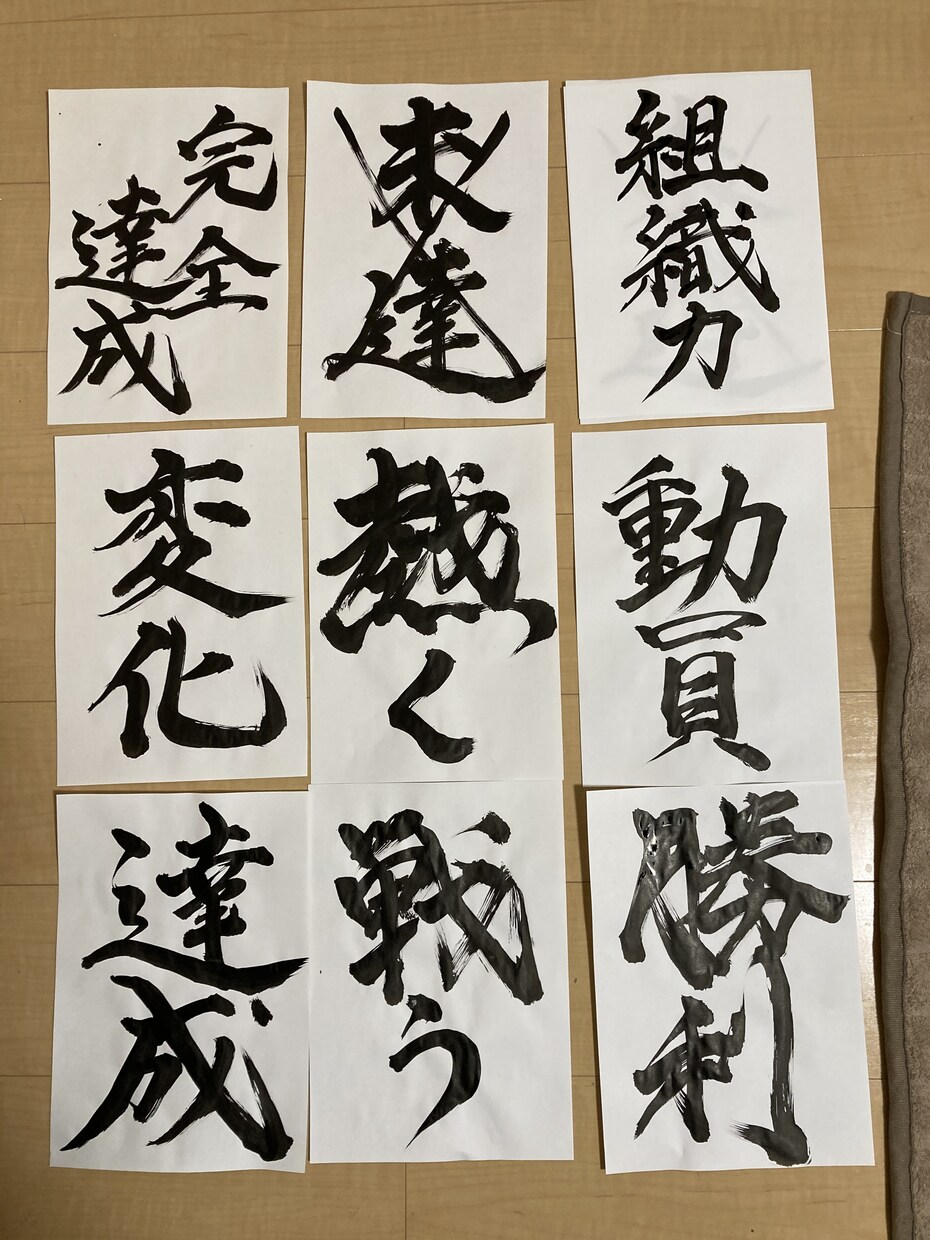 組織力
未達
完全
達成
動員
熱く
変化
勝利
戦う
達成